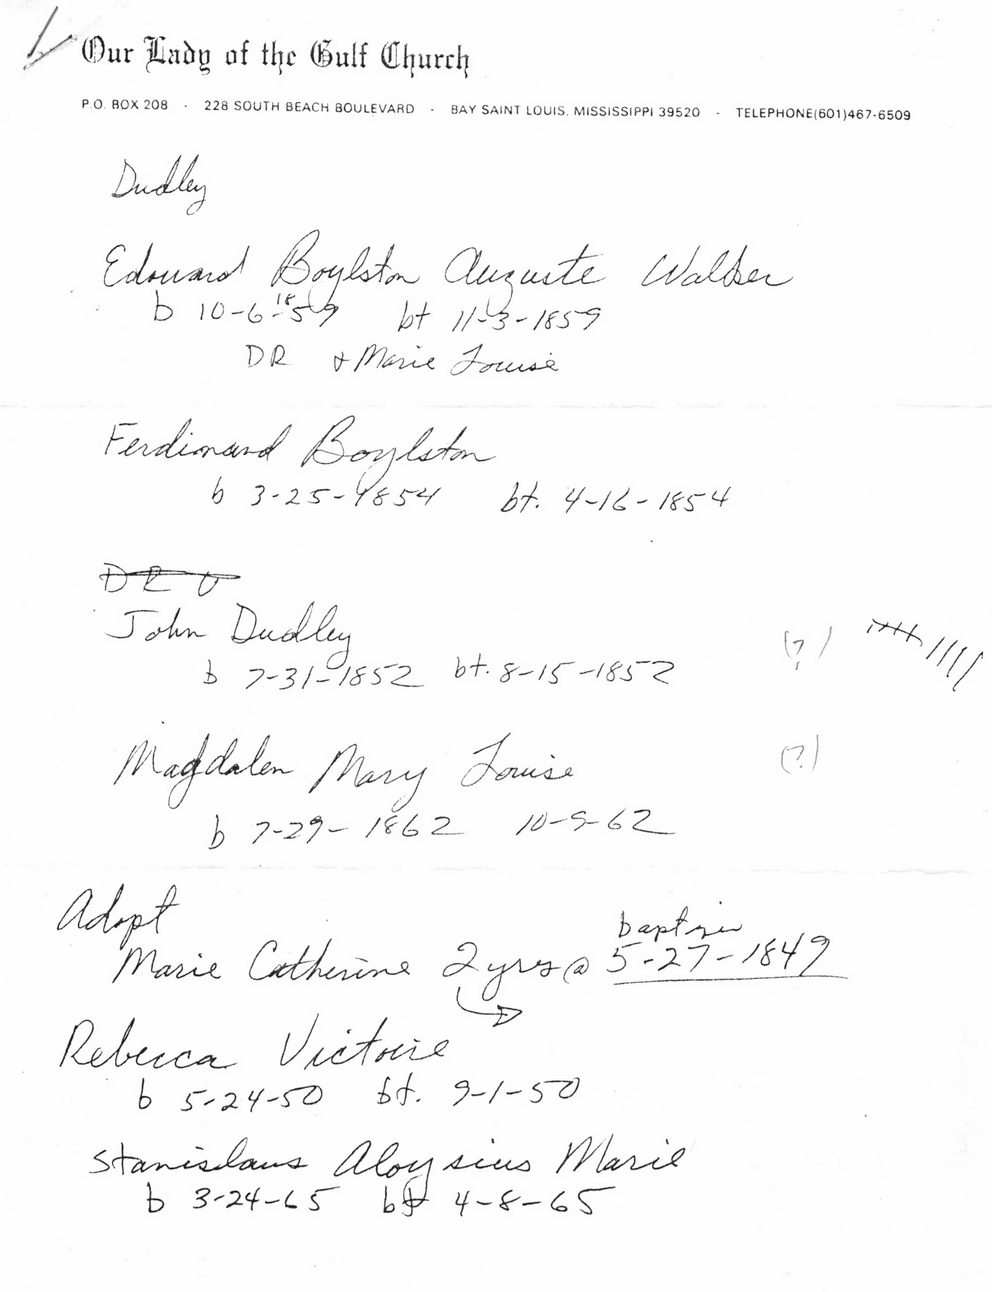 Our Lady of the Gulf Church
P.O. BOX 208 - 228 SOUTH BEACH BOULEVARD - BAY SAINT LOUIS, MISSISSIPPI 39520 - TELEPHONE(601)467-6509
Dudley
Edouard Boylston Auguste Walker
b 10-6-1859 bt 11-3-1859
DR & Marie Louise
Ferdinand Boylston
b 3-25-1854 bt. 4-16-1854
D R
John Dudley
b 7-31-1852 bt. 8-15-1852 (?)
Magdalen Mary Louise (?)
b 7-29-1862 10-5-62
Adopt
baptism
Marie Catherine 2 yrs @ 5-27-1849
Rebecca Victoire
b 5-24-50 bt. 9-1-50
Stanislaus Aloysius Marie
b 3-24-65 bt 4-8-65